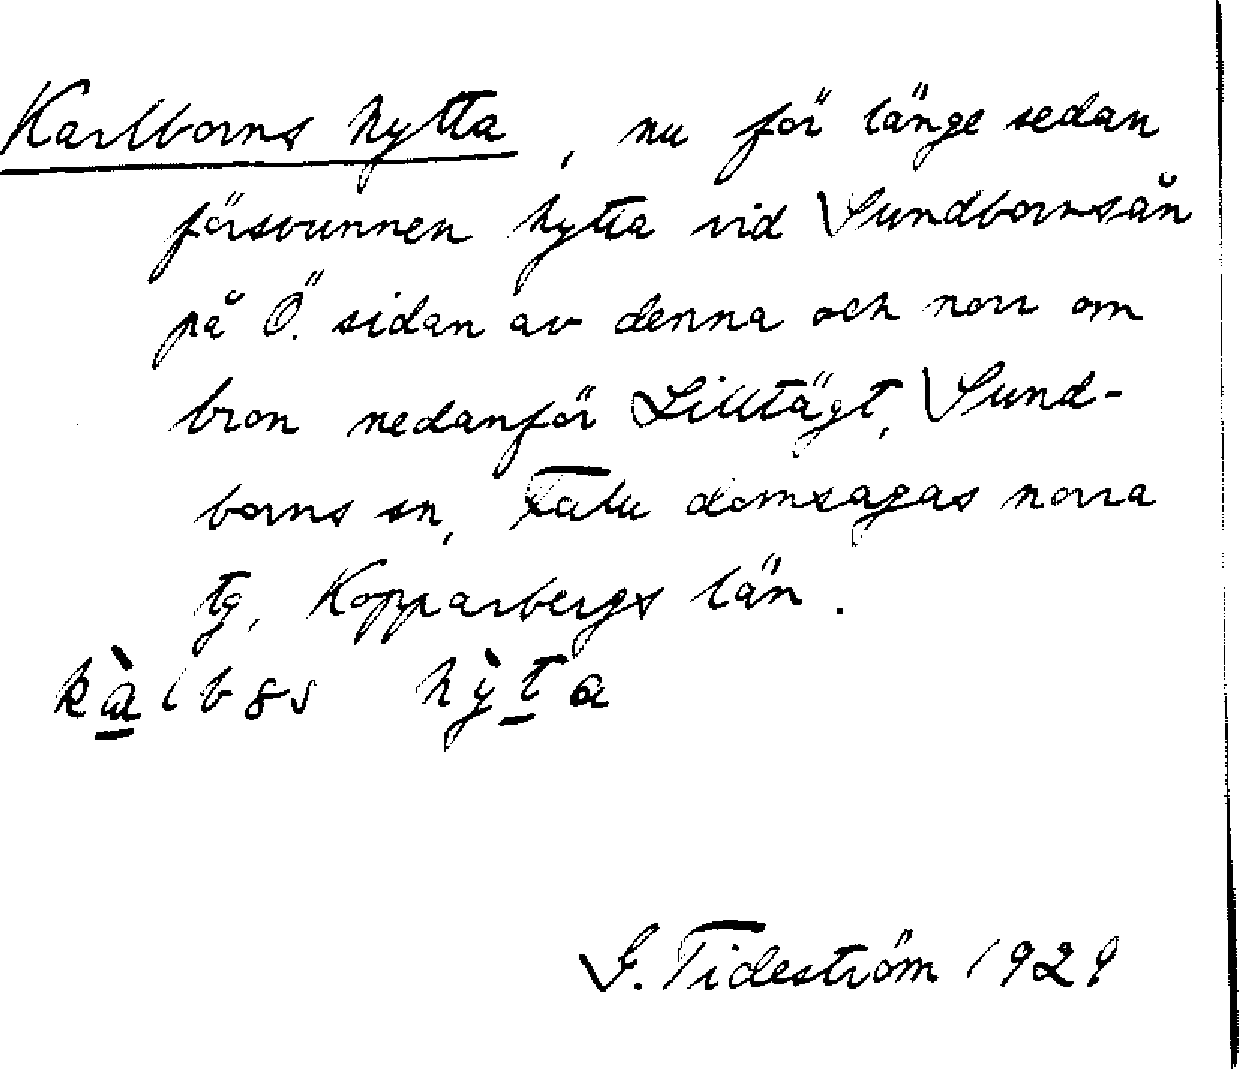 Karlborns hytta, nu för länge sedan
försvunnen hytta vid Sundbornsån
på Ö. sidan av denna och norr om
bron nedanför Lilltägt, Sund-
borns sn, Falu domsagas norra
tg, Kopparbergs län.
hỳta
G. Tideström 1929